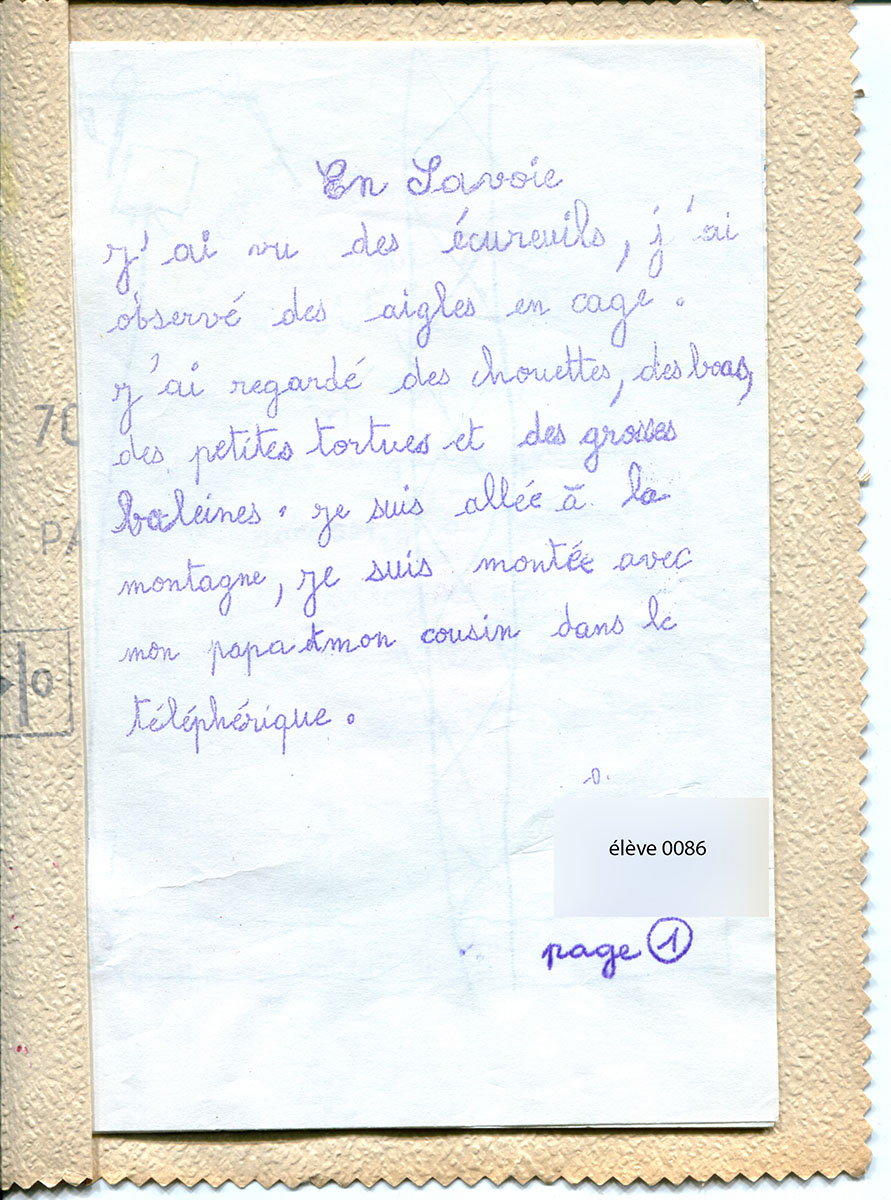 En Savoie
j'ai vu des écureuils, j'ai
observé des aigles en cage.
j'ai regardé des chouettes, des boas,
des petites tortues et des grosses
baleines. je suis allée à la
montagne, je suis montée avec
mon papa et mon cousin dans le
téléphérique.
élève 0086
page 1
70
PA
0